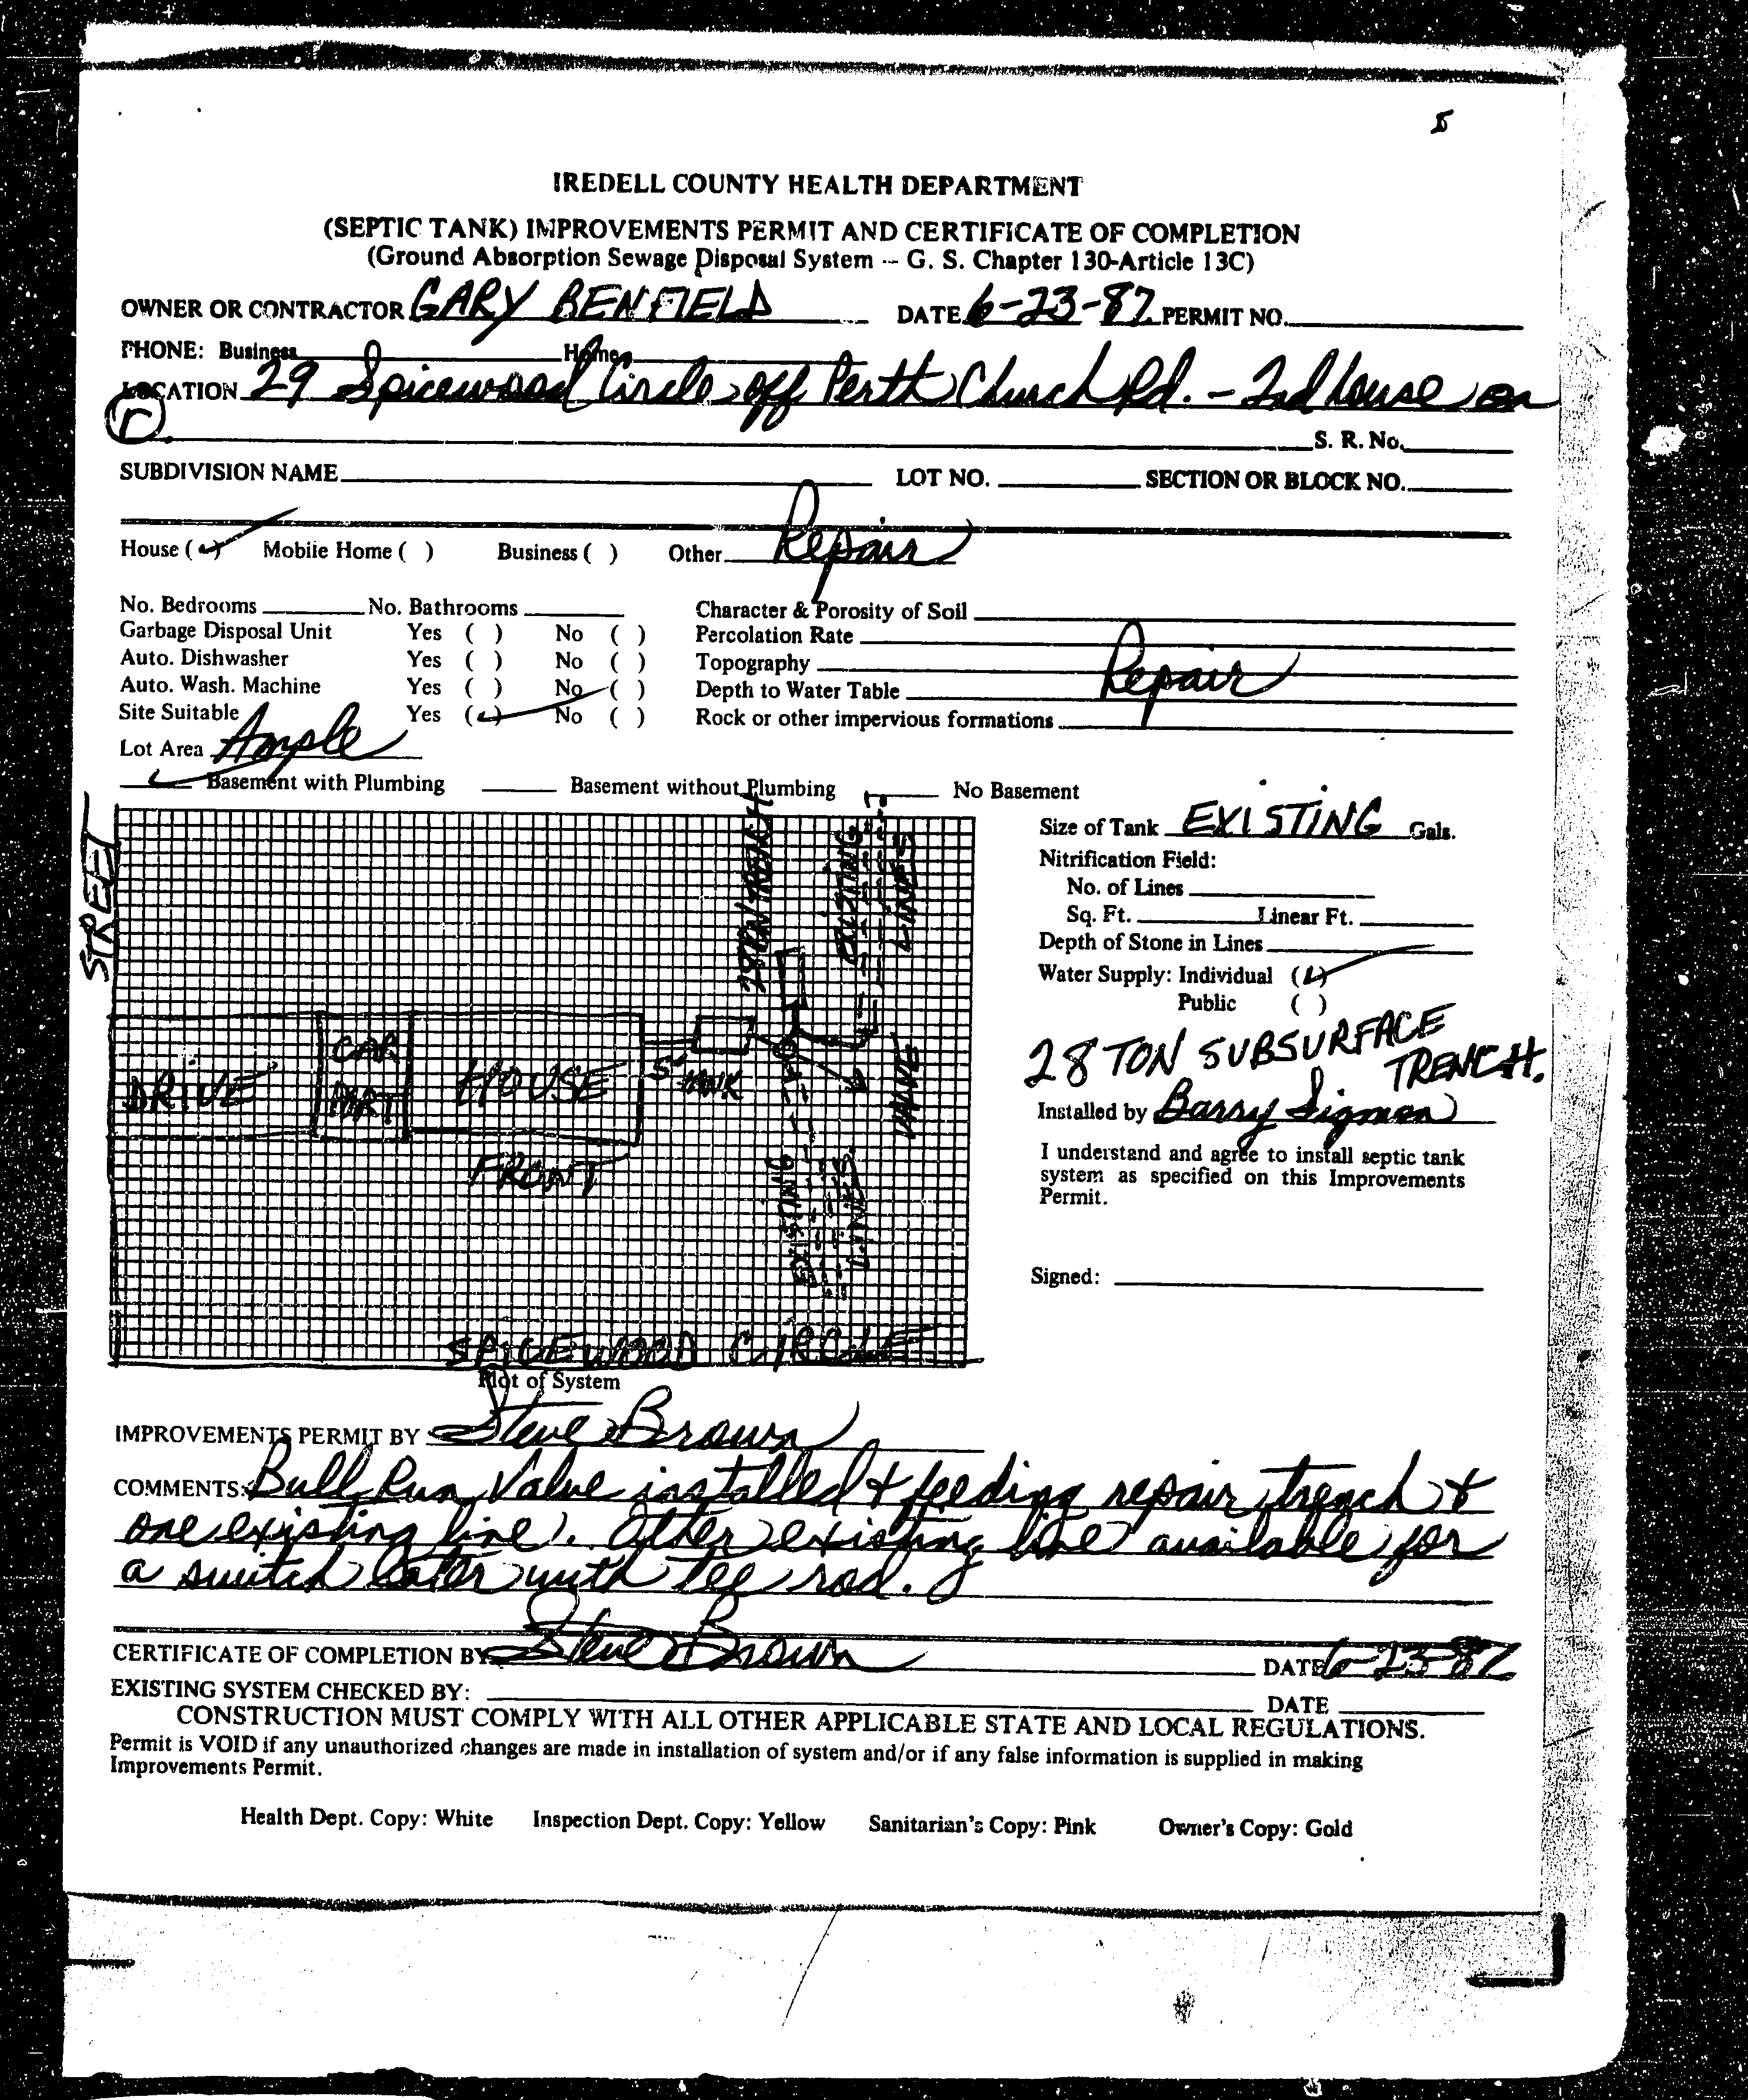 5
IREDELL COUNTY HEALTH DEPARTMENT
(SEPTIC TANK) IMPROVEMENTS PERMIT AND CERTIFICATE OF COMPLETION
(Ground Absorption Sewage Disposal System -- G. S. Chapter 130-Article 13C)
OWNER OR CONTRACTOR GARY BENFIELD DATE 6-23-87 PERMIT NO.
PHONE: Business Home
LOCATION 29 Spicewood Circle off Perth Church Rd. - 2nd house on
r. S. R. No.
SUBDIVISION NAME LOT NO. SECTION OR BLOCK NO.
House (✓) Mobile Home ( ) Business ( ) Other Repair
No. Bedrooms No. Bathrooms Character & Porosity of Soil
Garbage Disposal Unit Yes ( ) No ( ) Percolation Rate
Auto. Dishwasher Yes ( ) No ( ) Topography Repair
Auto. Wash. Machine Yes ( ) No ( ) Depth to Water Table
Site Suitable Yes (✓) No ( ) Rock or other impervious formations
Lot Area Ample
✓ Basement with Plumbing Basement without Plumbing No Basement
STREET
28 TON TRENCH
EXISTING
LINES
CAR
PORT
DRIVE
HOUSE
TANK
VALVE
FRONT
EXISTING
LINES
SPICEWOOD CIRCLE
Plot of System
Size of Tank EXISTING Gals.
Nitrification Field:
No. of Lines
Sq. Ft. Linear Ft.
Depth of Stone in Lines
Water Supply: Individual (✓)
Public ( )
28 TON SUBSURFACE
TRENCH.
Installed by Barry Sigmon
I understand and agree to install septic tank
system as specified on this Improvements
Permit.
Signed:
IMPROVEMENTS PERMIT BY Steve Brown
COMMENTS: Bull Run Valve installed & feeding repair trench &
one existing line. Other existing line available for
a switch later with tee rod.
CERTIFICATE OF COMPLETION BY Steve Brown DATE 6-23-87
EXISTING SYSTEM CHECKED BY: DATE
CONSTRUCTION MUST COMPLY WITH ALL OTHER APPLICABLE STATE AND LOCAL REGULATIONS.
Permit is VOID if any unauthorized changes are made in installation of system and/or if any false information is supplied in making
Improvements Permit.
Health Dept. Copy: White Inspection Dept. Copy: Yellow Sanitarian's Copy: Pink Owner's Copy: Gold